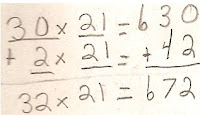 30 x 21 = 630
+ 2 x 21 = + 42
32 x 21 = 672